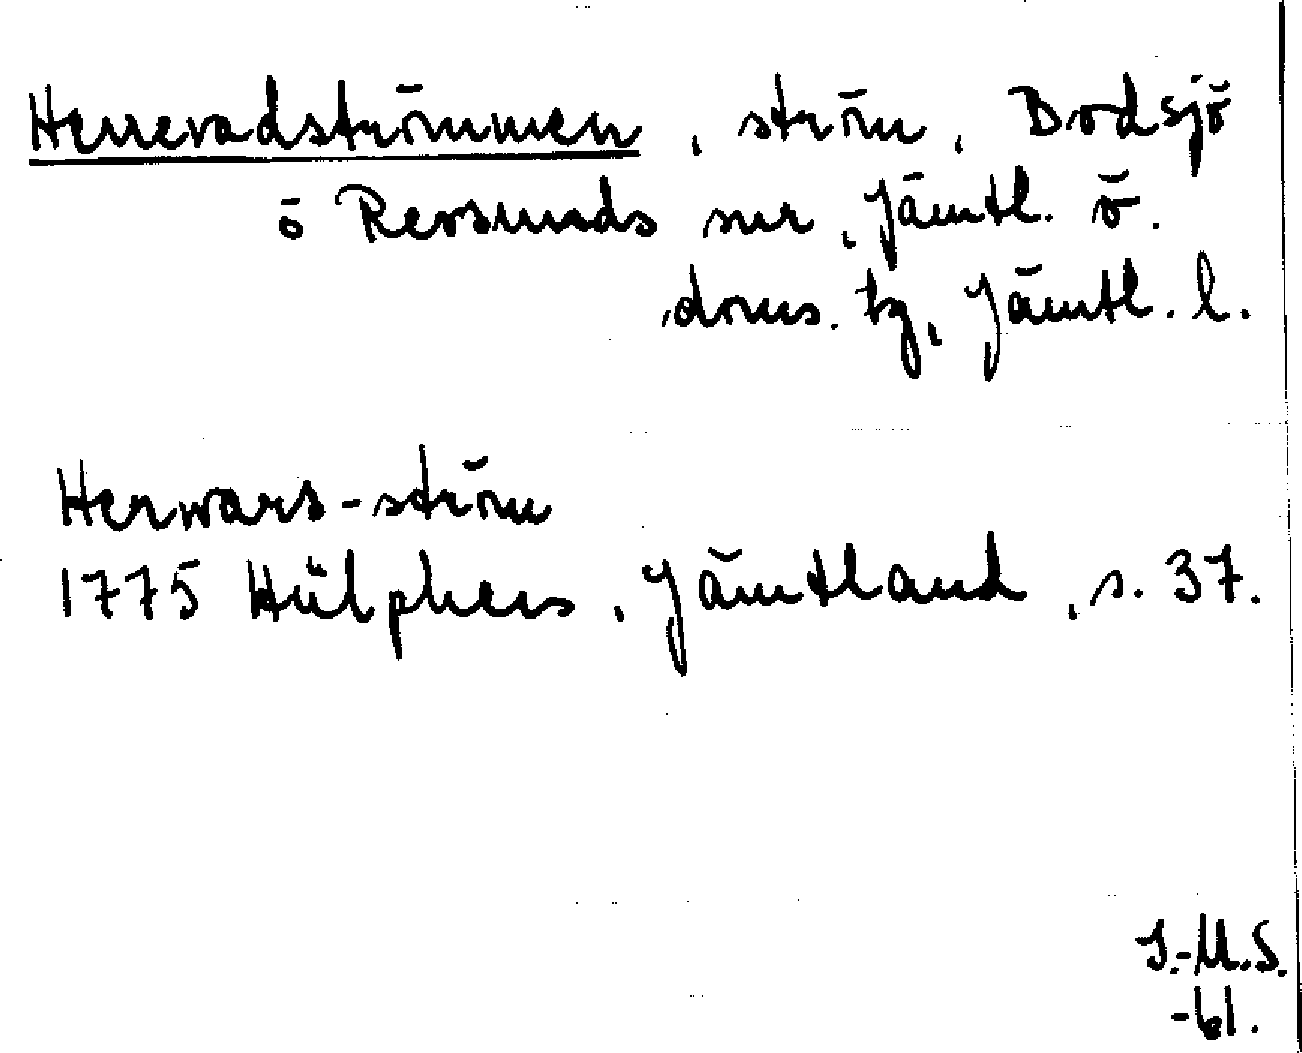 Herrevadströmmen, ström, Bodsjö
o Revsunds snr, Jämtl. ö.
doms. tg, Jämtl. l.
Herwars-ström
1775 Hülphers, Jämtland, s. 37.
I.-M.S.
-61.